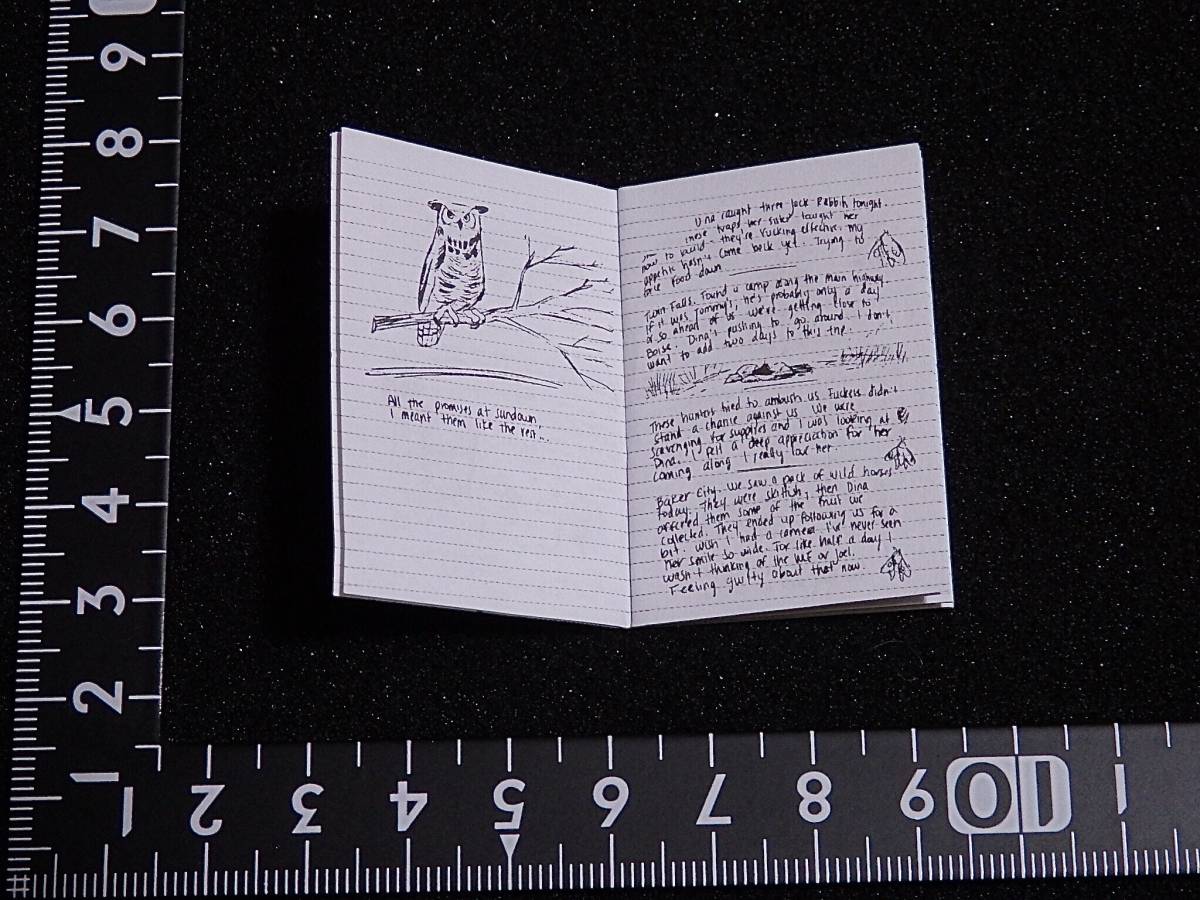 All the promises at sundown,
I meant them like the rest...
Una caught three Jack Rabbits tonight.
These traps her sister taught her
how to build - they're fucking effective. My
appetite hasn't come back yet. Trying to
force food down
Twin Falls. Found a camp along the main highway.
If it was Tommy's, he's probably only a day
or so ahead of us. We're getting close to
Boise. Dina's pushing to go around. I don't
want to add two days to this trip.
These hunters tried to ambush us. Fuckers didn't
stand a chance against us. We were
scavenging for supplies and I was looking at
Dina. I felt a deep appreciation for her
coming along. I really love her.
Baker City. We saw a pack of wild horses
today. They were skittish, then Dina
offered them some of the fruit we
collected. They ended up following us for a
bit. Wish I had a camera. I've never seen
her smile so wide. For like half a day I
wasn't thinking of the WLF or Joel.
Feeling guilty about that now.
9
8
7
6
5
4
3
2
1
1 2 3 4 5 6 7 8 9 10 1